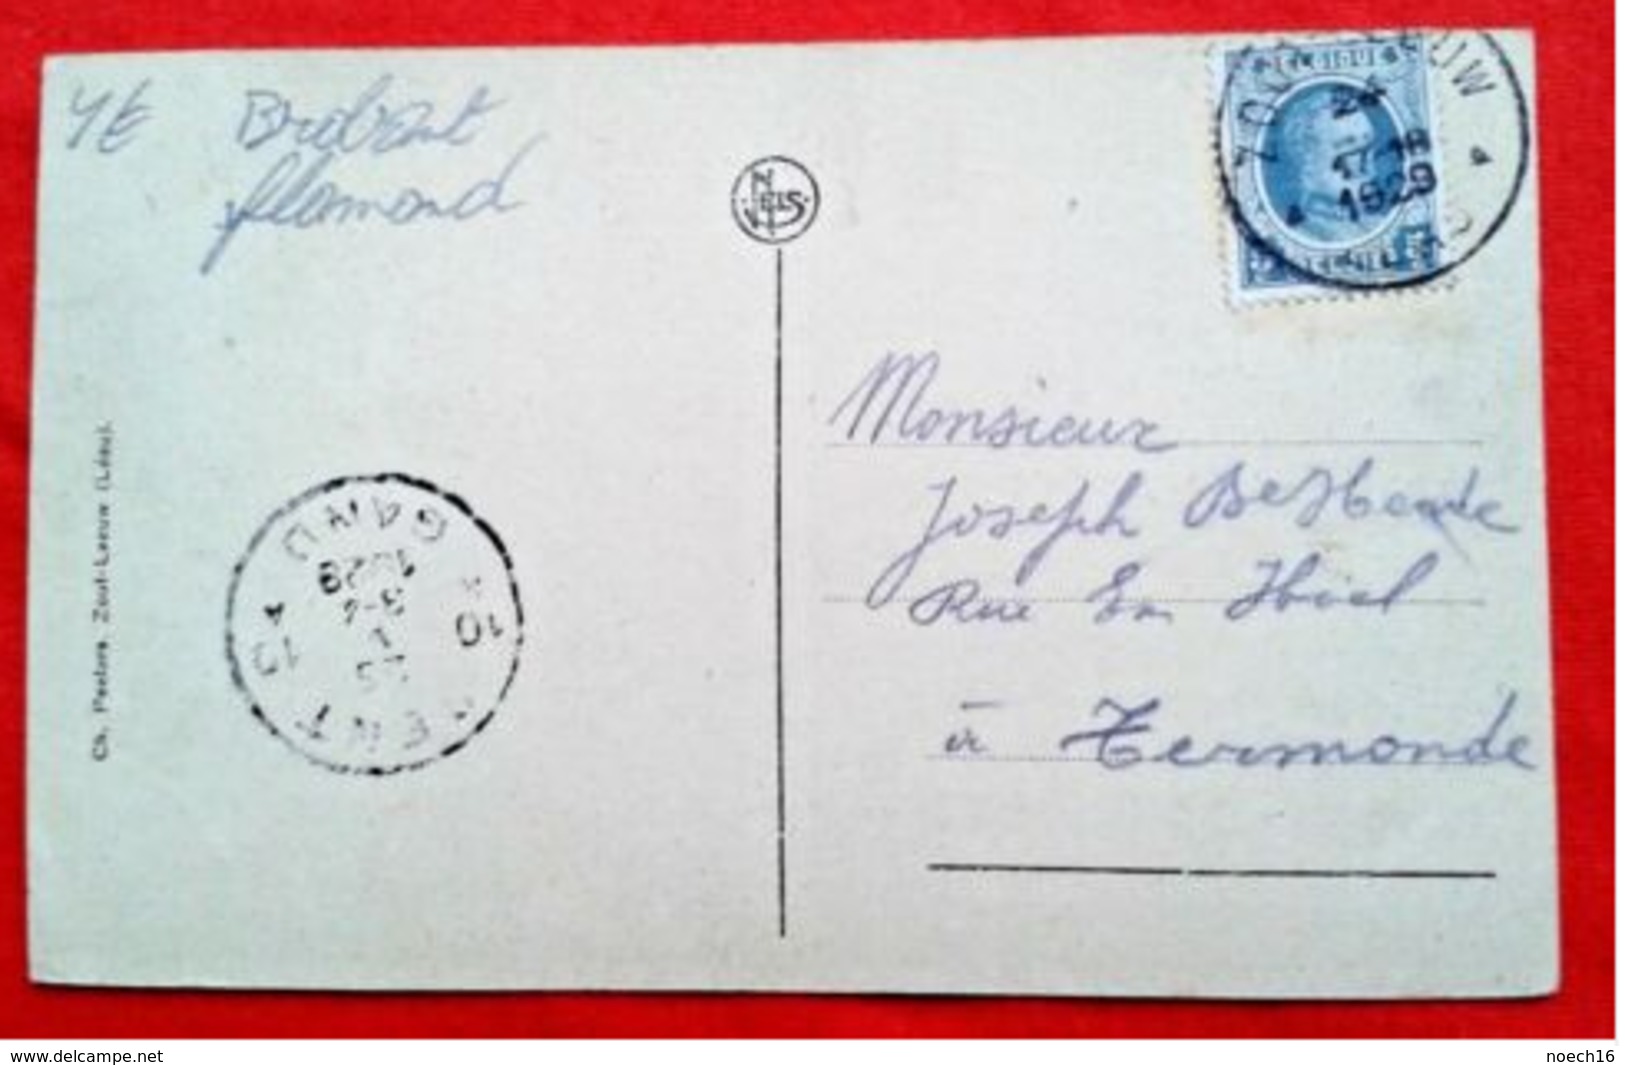 4E Brabant
flamand
NELS
ZOUT-LEEUW
24
I
17-18
1929
LEAU
Monsieur
Joseph
Rue Em Hiel
à Termonde
GAND
10 10
25
I
3-4
1929
GENT
Ch. Peeters. Zout-Leeuw (Léau).
www.delcampe.net
noech16